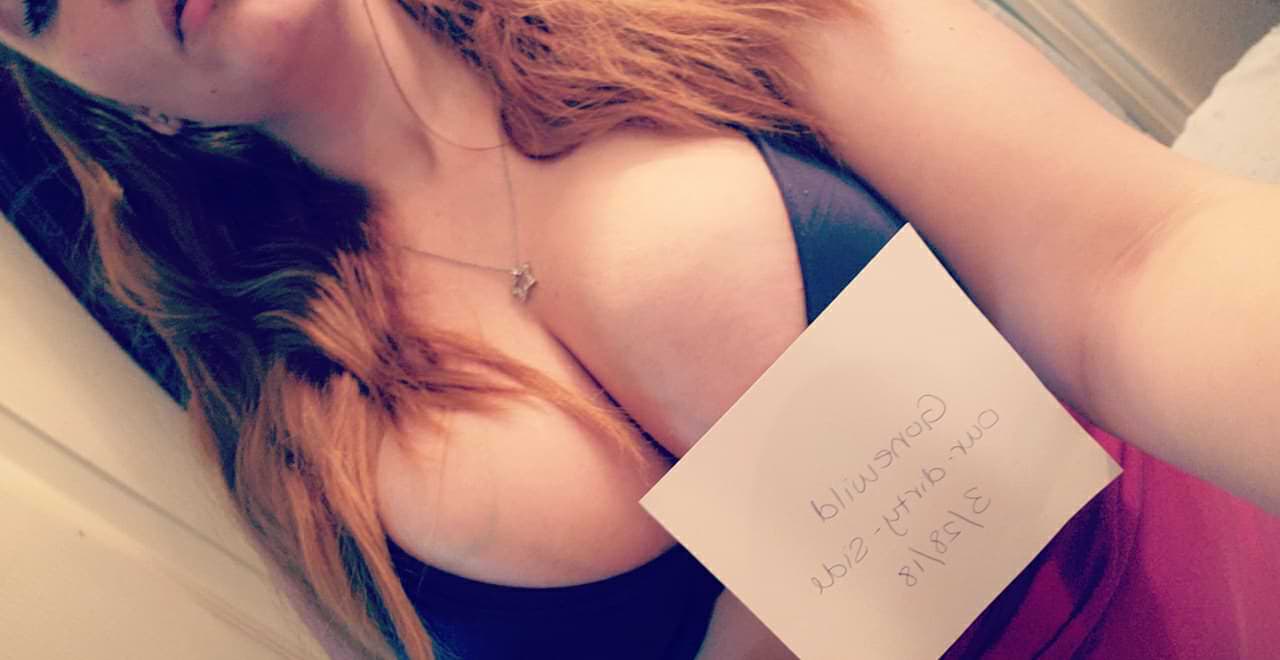 Gonewild
our-dirty-side
3/28/18